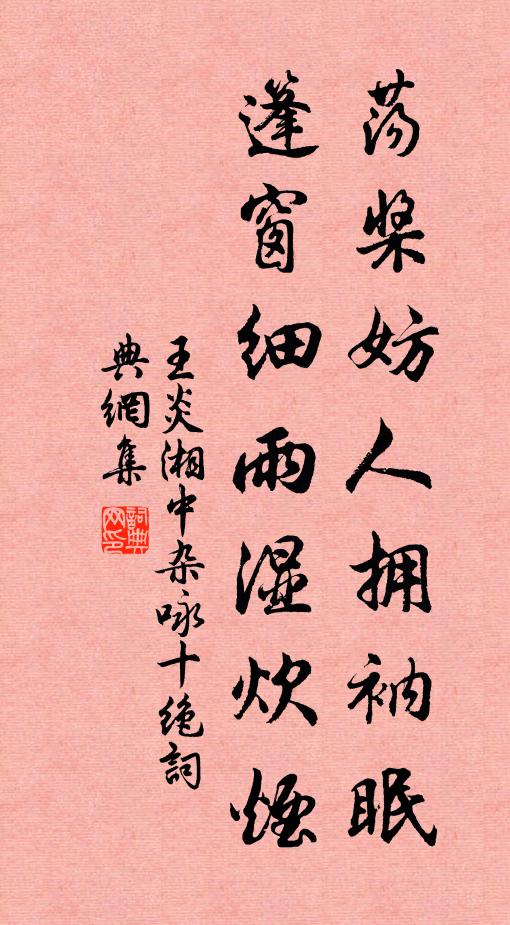 荡桨妨人拥衲眠
篷窗细雨湿炊烟
王炎湘中杂咏十绝词
典网集
词典网印